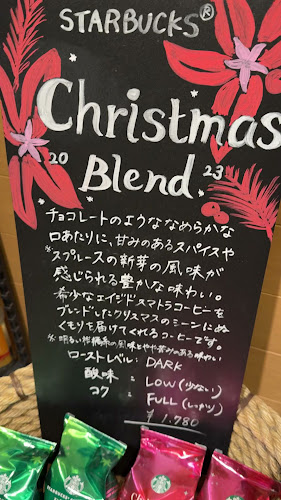 STARBUCKS®
Christmas
20 23
Blend
チョコレートのようななめらかな
口あたりに、甘みのあるスパイスや
※スプルースの新芽の風味が
感じられる豊かな味わい。
希少なエイジドスマトラコーヒーを
ブレンドしたクリスマスのシーンにぬ
くもりを届けてくれるコーヒーです。
※明るい柑橘系の風味とやや苦みのある味わい
ローストレベル: DARK
酸味 : LOW (少ない)
コク : FULL (しっかり)
¥1,780